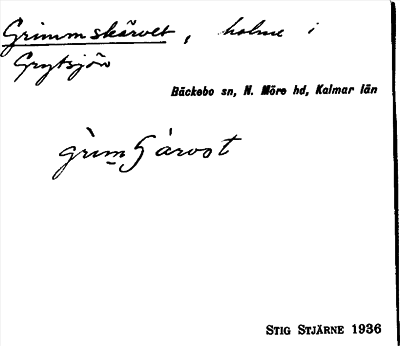 Grimmskärvet, holme i
Grytsjön
Bäckebo sn, N. Möre hd, Kalmar län
STIG STJÄRNE 1936